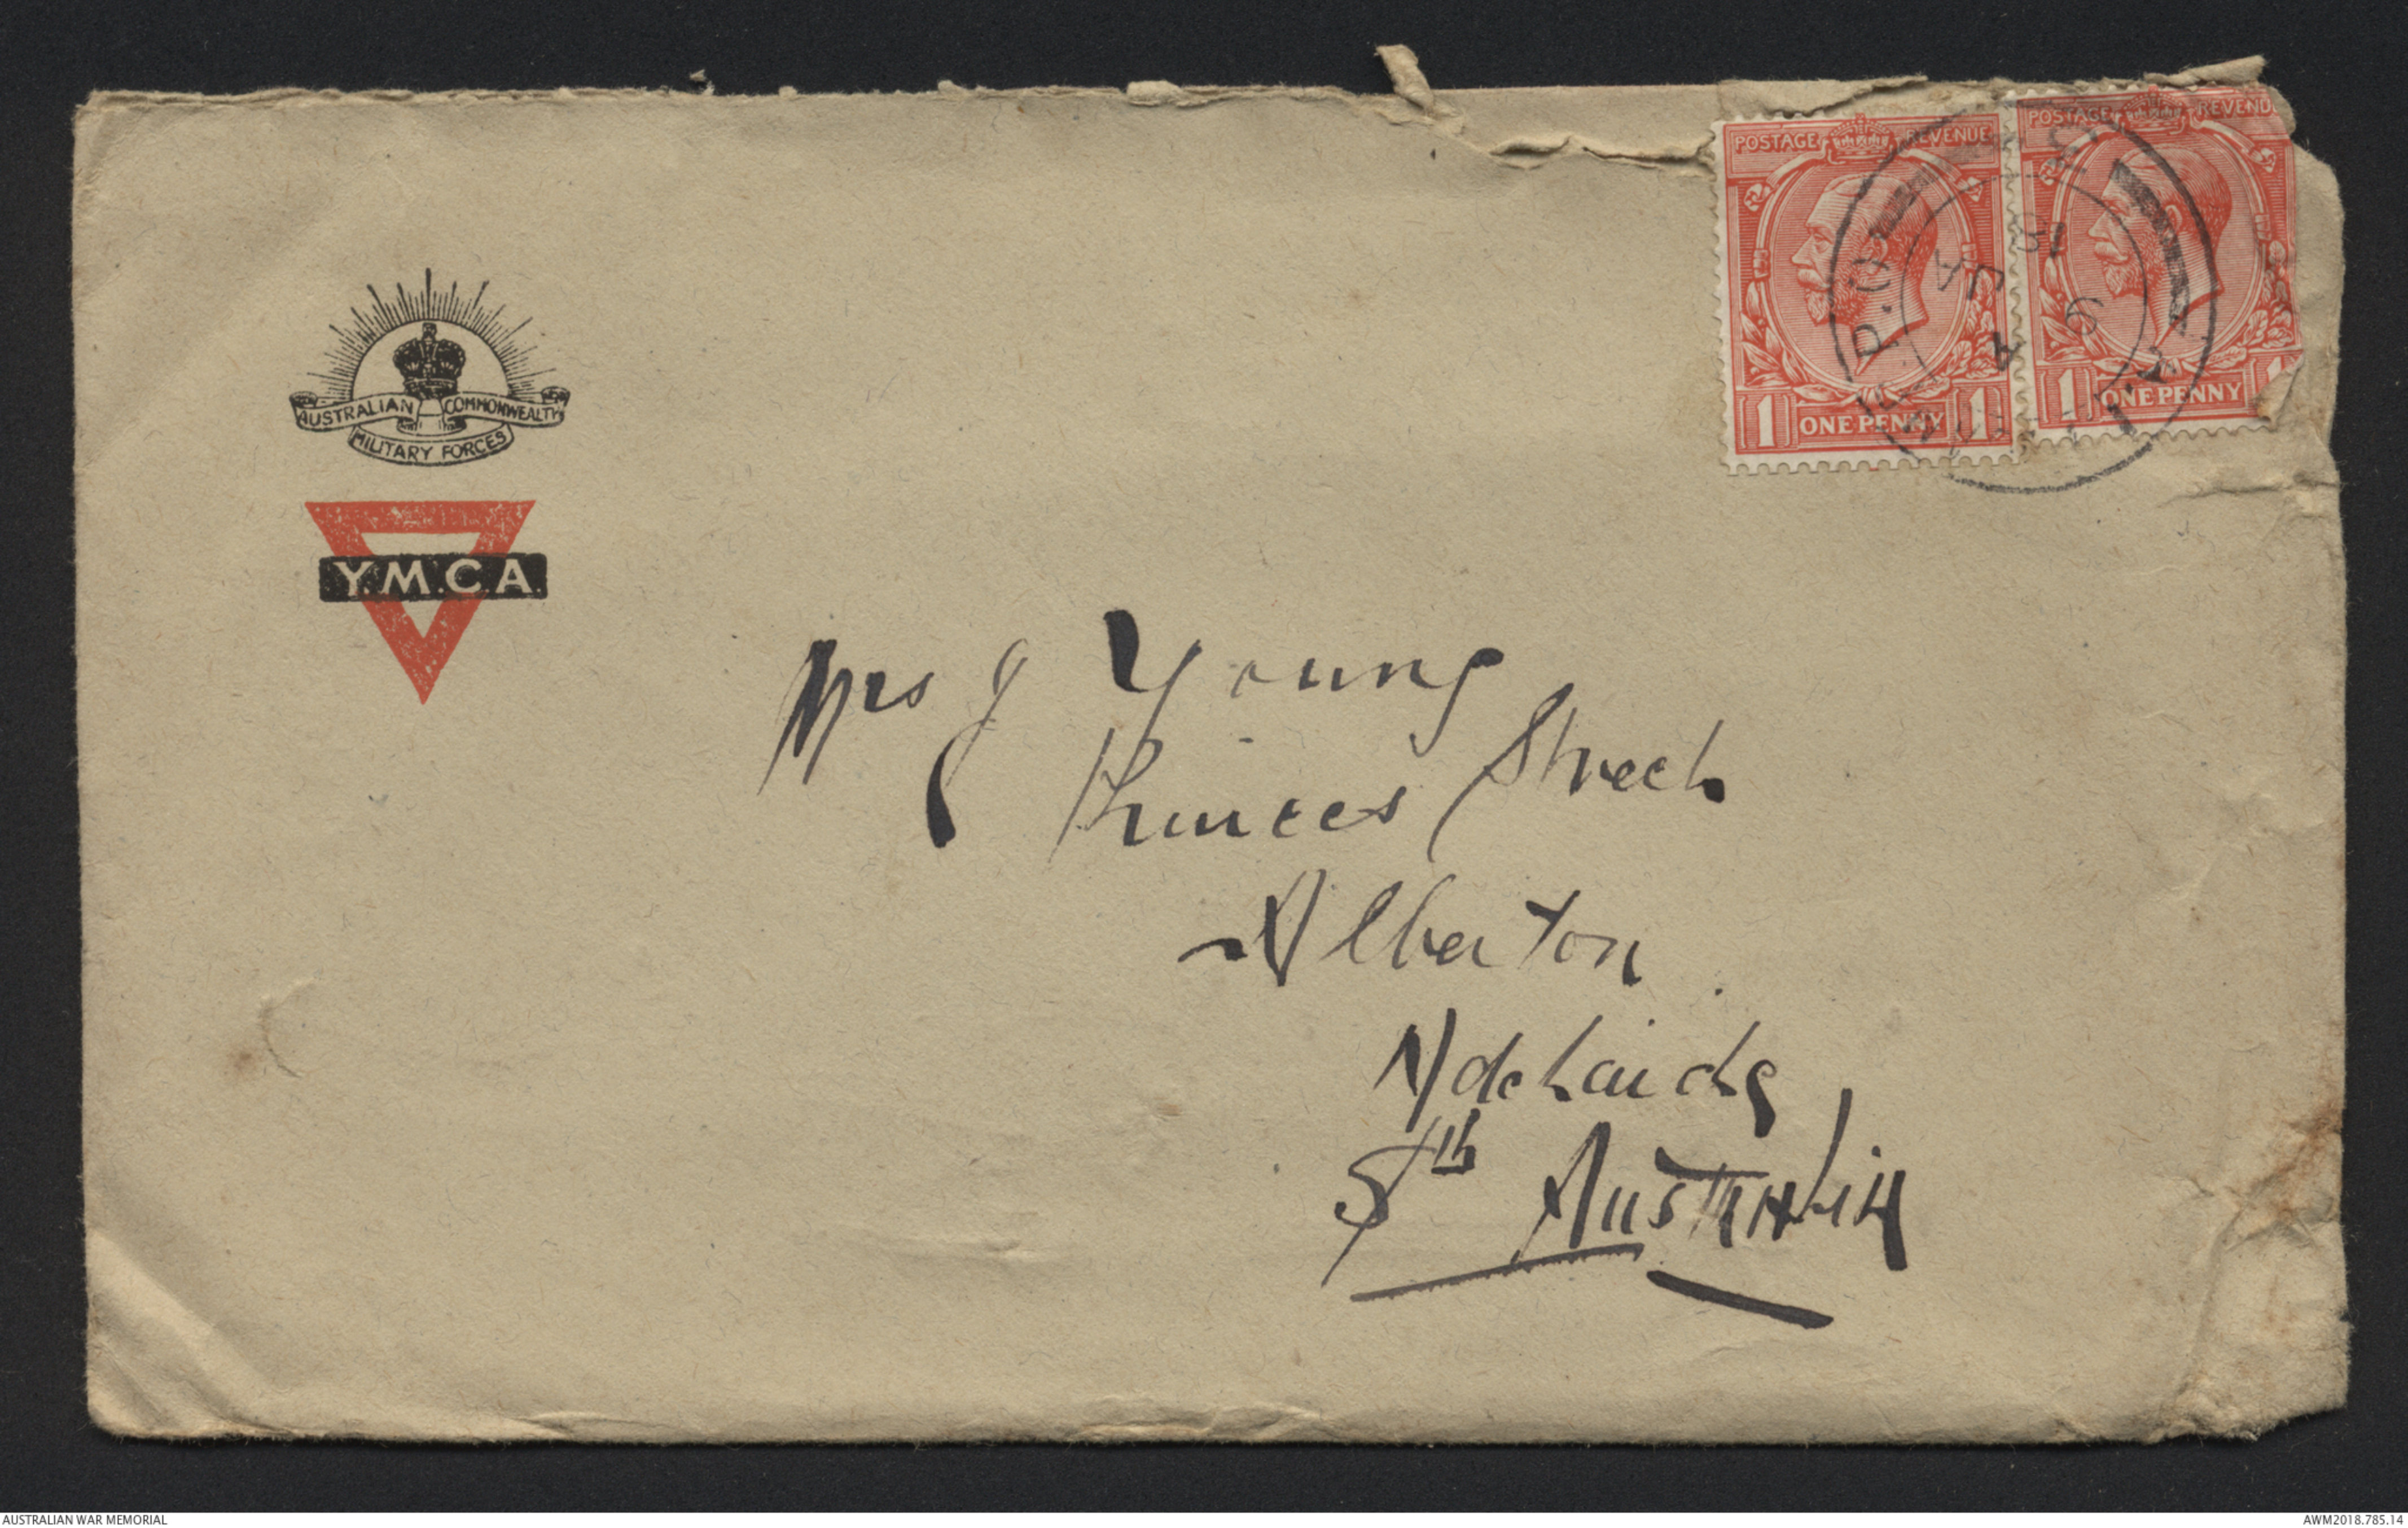 POSTAGE REVENUE
POSTAGE REVENU
AUSTRALIAN COMMONWEALTH
MILITARY FORCES
Y.M.C.A.
1 ONE PENNY 1
1 ONE PENNY 1
P.O.
A
9
JA
18
Mrs J Young
Princes Street
Alberton
Adelaide
Sth Australia
AUSTRALIAN WAR MEMORIAL
AWM2018.785.14